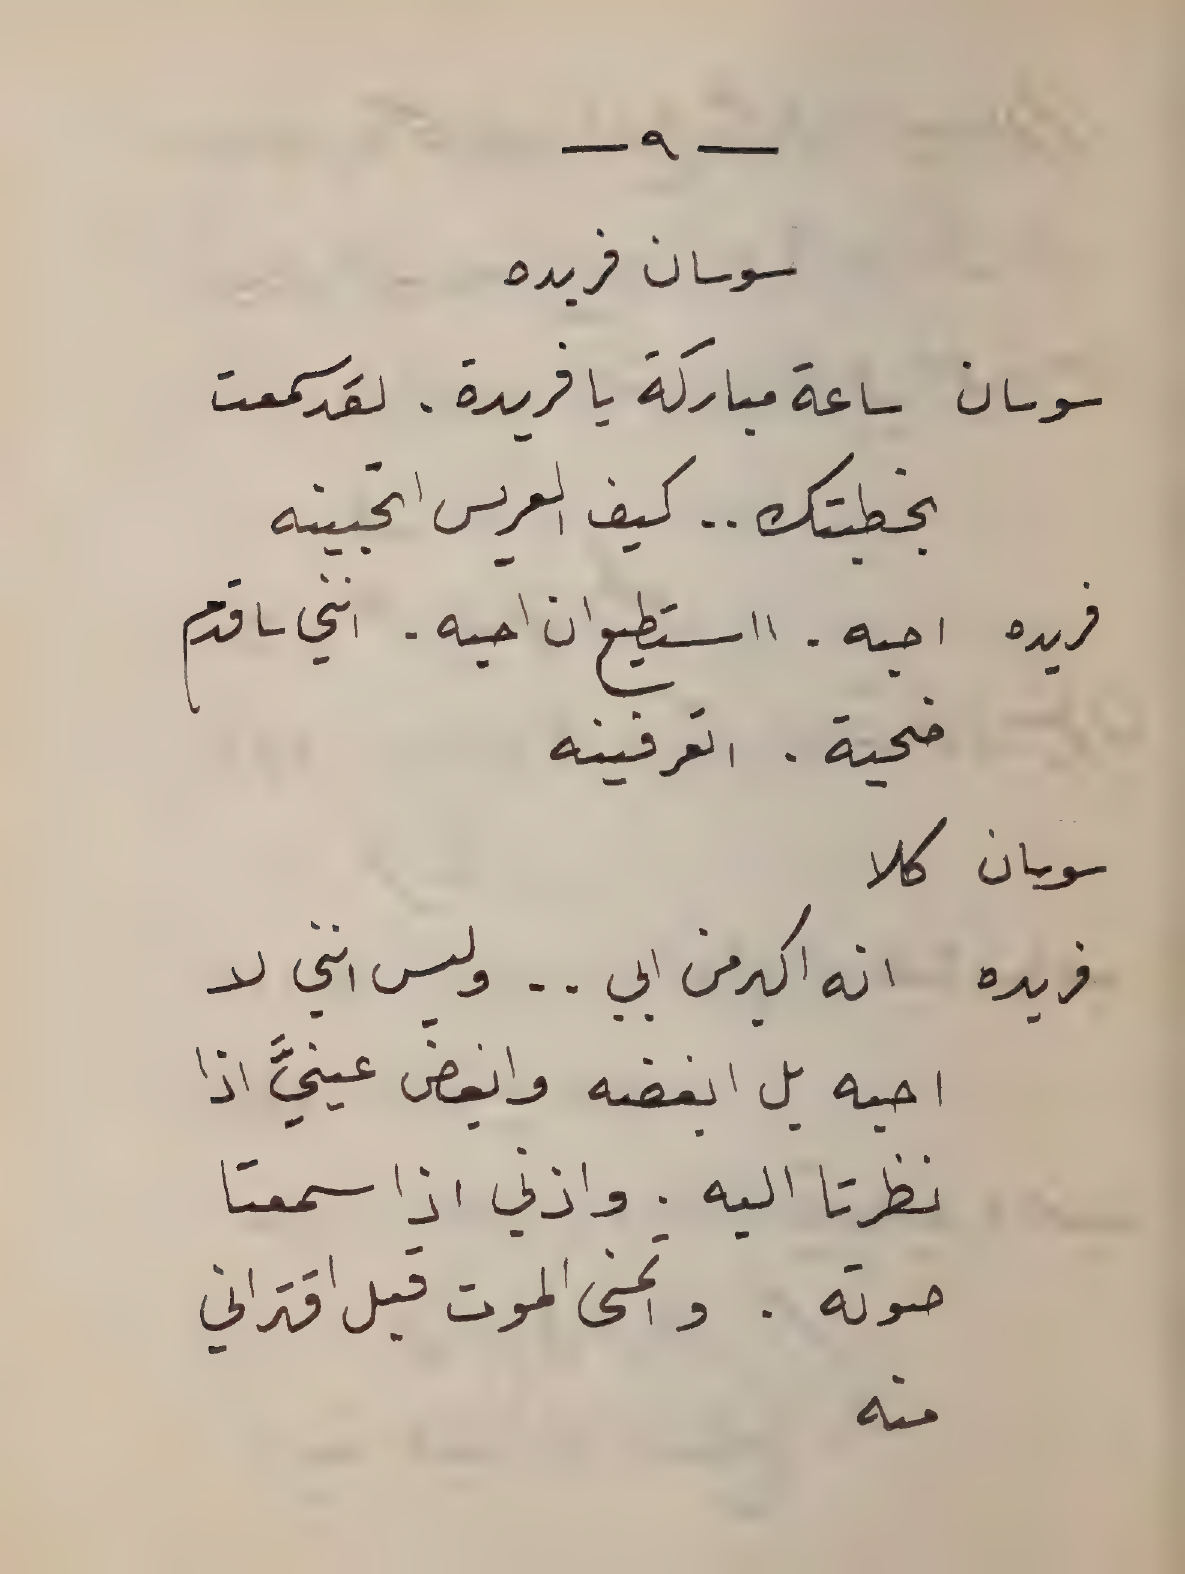 — ٩ —
سوسان فريده
سوسان ساعة مباركة يا فريدة . لقد سمعت
بخطبتك .. كيف العريس اتحبينه
فريده احبه . ااستطيع ان احبه . انني ساقدم
ضحية . اتعرفينه
سوسان كلا
فريده انه اكبر من ابي .. وليس انني لا
احبه بل ابغضه وابغض عينيَّ اذا
نظرتا اليه . واذني اذا سمعتا
صوته . واتمنى الموت قبل اقتراني
منه